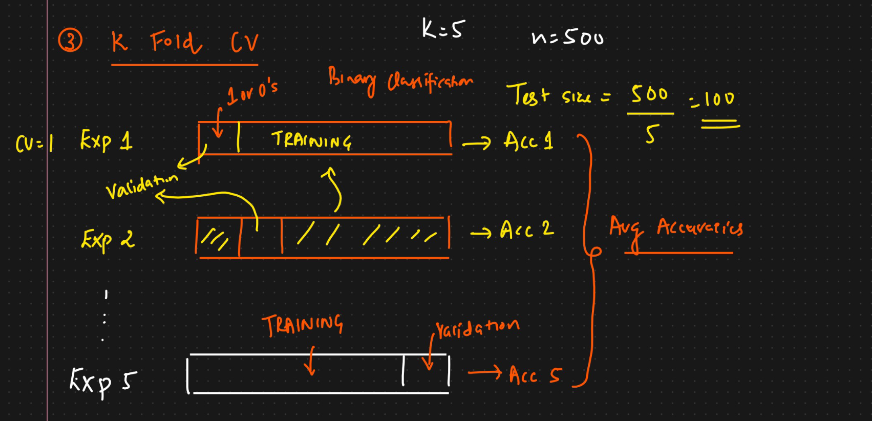 ③ K Fold CV
K=5
n=500
1 or 0's
Binary Classification
Test size = 500/5 = 100
CV=1 Exp 1
TRAINING
→ Acc 1
Validation
Exp 2
→ Acc 2
Avg Accuracies
TRAINING
Validation
Exp 5
→ Acc 5